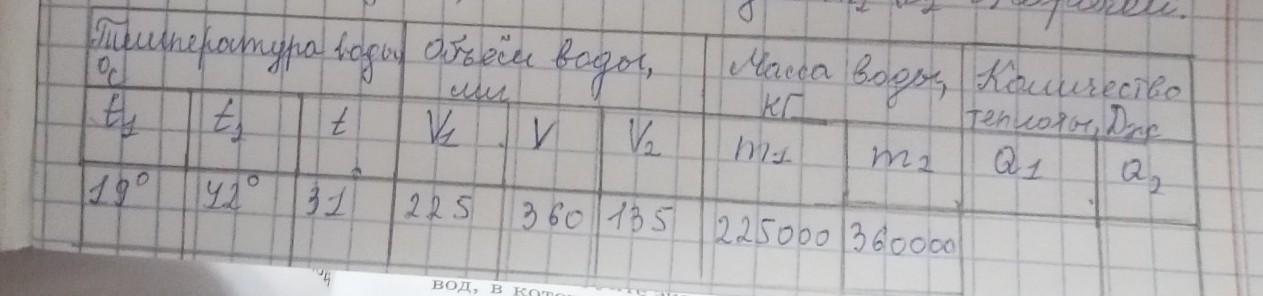 Температура воды Объём воды, Масса воды, Количество
°C мл кг теплоты, Дж
t1 t2 t V1 V V2 m1 m2 Q1 Q2
19° 42° 31 225 360 135 225000 360000
вод, в